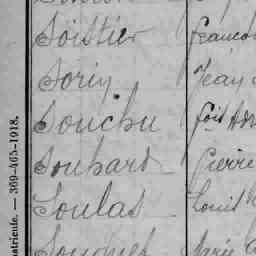 Soistier Francois
Sorin Jean
Souchu
Souhard Pierre
Soulas Louis
Souquet Marie
matricule. — 369-465-1918.